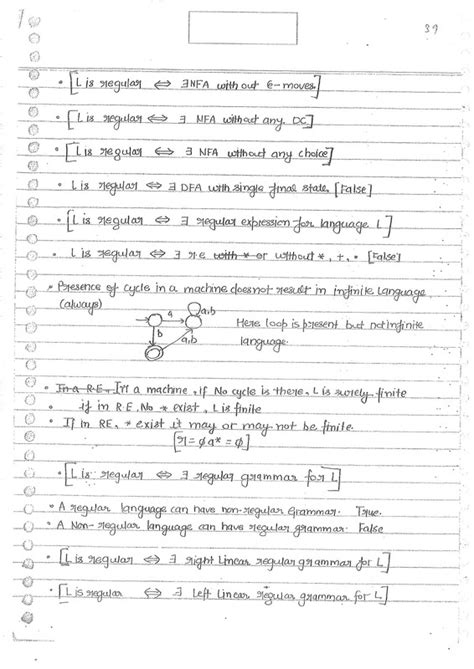 39
• [L is regular ⇔ ∃NFA without ε-moves]
• [L is regular ⇔ ∃ NFA without any DC]
• [L is regular ⇔ ∃ NFA without any choice]
• L is regular ⇔ ∃ DFA with single final state. [False]
• [L is regular ⇔ ∃ regular expression for language L]
• L is regular ⇔ ∃ r.e with * or without *, +, • [False]
• Presence of cycle in a machine does not result in infinite language
(always)
a
a,b
b
a,b
Here loop is present but not infinite
language.
• In a R.E, In a machine, if No cycle is there, L is surely finite
• if in R.E, No * exist, L is finite
• If in RE, * exist it may or may not be finite.
[r = ϕa* = ϕ]
• [L is regular ⇔ ∃ regular grammar for L]
• A regular language can have non-regular Grammar. True.
• A Non-regular language can have regular grammar. False
• [L is regular ⇔ ∃ right Linear regular grammar for L]
• [L is regular ⇔ ∃ Left Linear regular grammar for L]